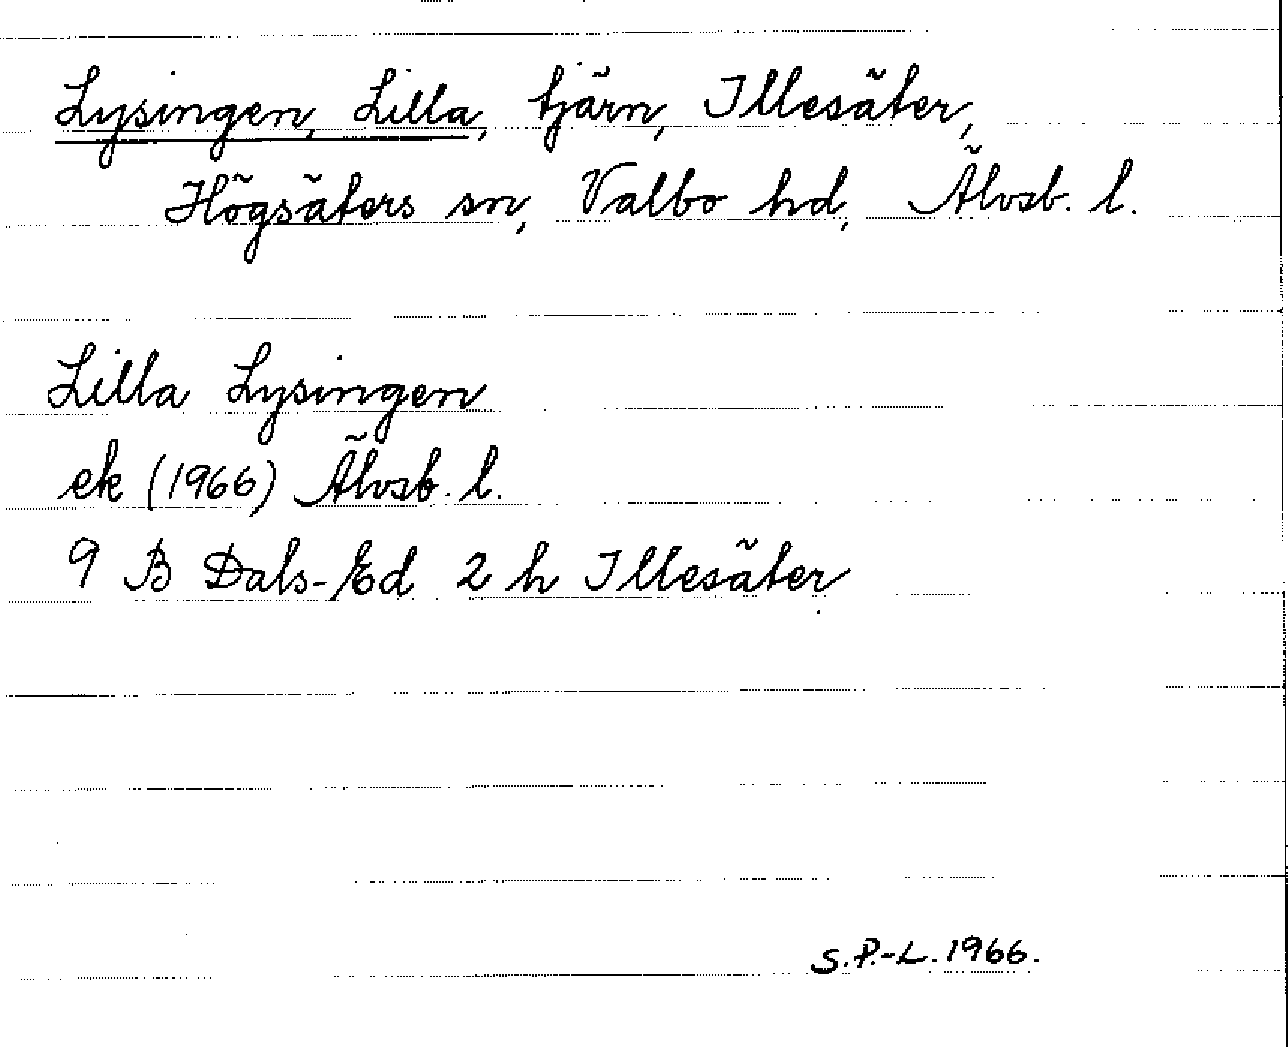 Lysingen, Lilla, tjärn, Illesäter,
Högsäters sn, Valbo hd, Älvsb. l.
Lilla Lysingen
ek (1966) Älvsb. l.
9 B Dals-Ed 2 h Illesäter
S.P.-L. 1966.